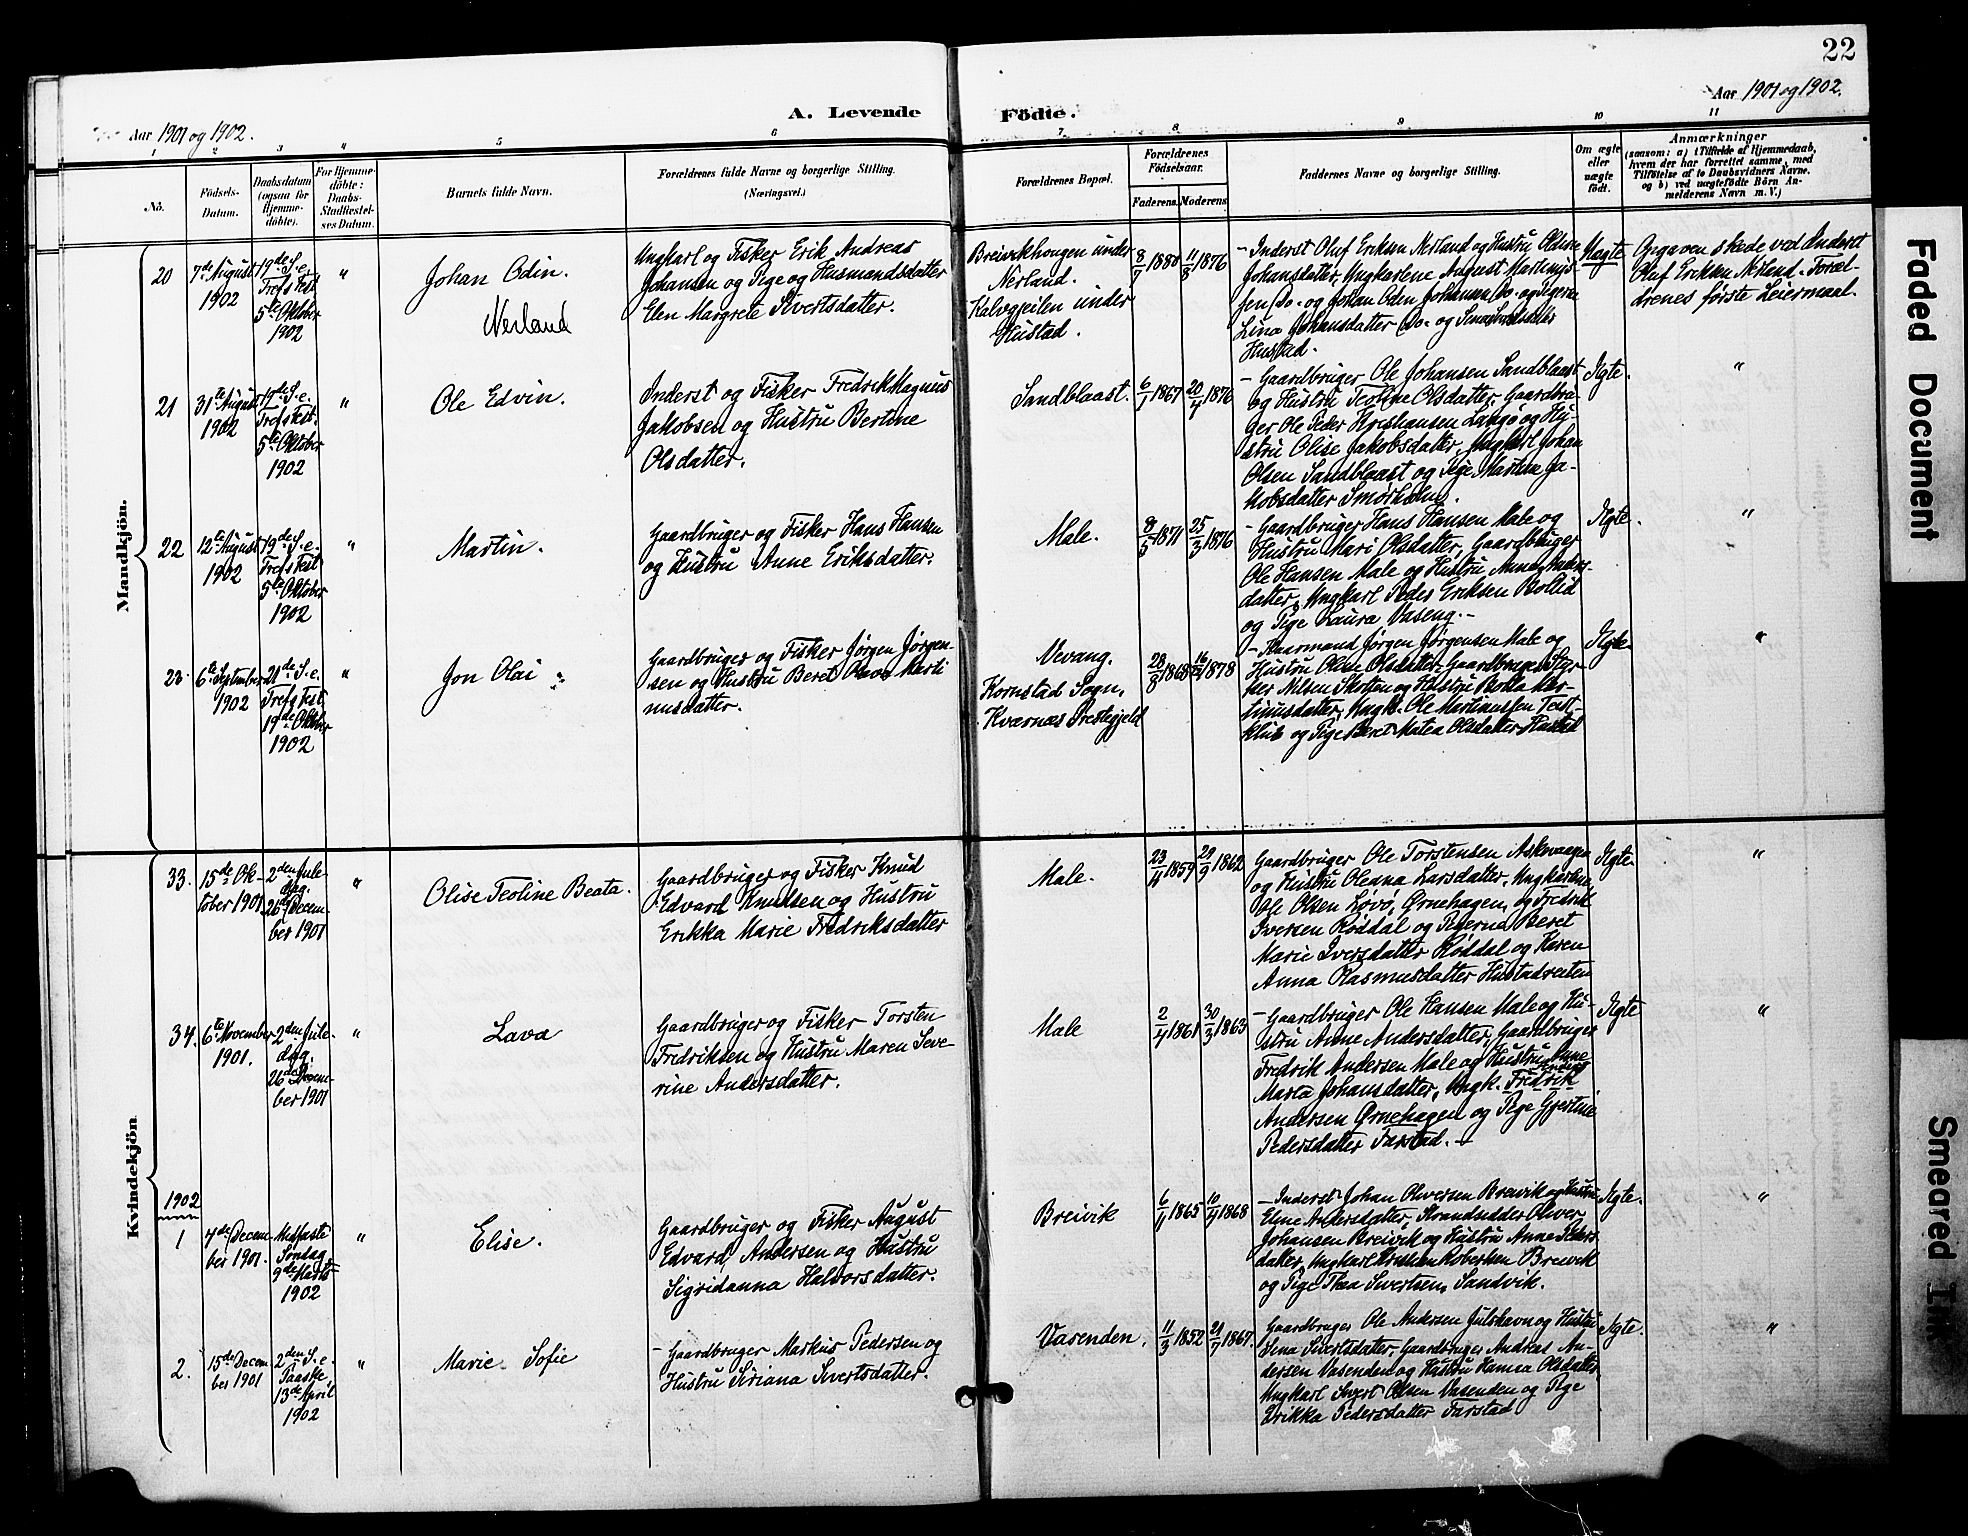 22
Aar 1901 og 1902.
A. Levende Födte.
Aar 1901 og 1902.
1 2 3 4 5 6 7 8 9 10 11
No.
Födsels-
Datum.
Daabsdatum
(ogsaa for
Hjemme-
döbte).
For Hjemme-
döbte:
Daabs-
Stadfæstel-
ses Datum.
Barnets fulde Navn.
Forældrenes fulde Navne og borgerlige Stilling.
(Næringsvei.)
Forældrenes Bopæl.
Forældrenes
Födselsaar.
Faderens.
Moderens.
Faddernes Navne og borgerlige Stilling.
Om ægte
eller
uægte
födt.
Anmærkninger
(saasom: a) i Tilfælde af Hjemmedaab,
hvem der har forrettet samme, med
Tilföielse af to Daabsvidners Navne,
og b) ved uægtefödte Börn An-
melderens Navn m. V.)
Mandkjön.
20
7de August
1902
19de S. e.
Trefs Fest
5te Oktober
1902
"
Johan Odin.
Nerland
Ungkarl og Fisker Erik Andreas
Johansen og Pige og Husmandsdatter
Elen Margrete Sivertsdatter.
Breivikhougen under
Nerland.
Kalvgjeilen under
Hustad.
8/7 1880
11/8 1876
- Inderst Oluf Eriksen Nerland og Hustru Oldine
Johansdatter, Ungkarlene August Martinus-
sen Do. og Johan Odin Johansen Do. og Pigerne
Lina Johansdatter Do. og
Hustad.
Uægte
Opgaven skede ved Inderst
Oluf Eriksen Nerland. Foræl-
drenes første Leiermaal.
21
31te August
1902
19de S. e.
Trefs Fest
5te Oktober
1902
"
Ole Edvin.
Inderst og Fisker Fredrik Magnus
Jakobsen og Hustru Bertine
Olsdatter.
Sandblaast.
6/1 1867
20/4 1876
- Gaardbruger Ole Johansen Sandblaast
og Hustru Teoline Olsdatter, Gaardbru-
ger Ole Peder Kristiansen Langø og Hu-
stru Olise Jakobsdatter, Ungkarl Johan
Olsen Sandblaast og Pige Martine Ja-
kobsdatter Smørholm.
Ægte.
"
22
12te August
1902
19de S. e.
Trefs Fest
5te Oktober
1902
"
Martin.
Gaardbruger og Fisker Hans Hansen
og Hustru Anne Eriksdatter.
Male.
8/5 1871
25/3 1876
- Gaardbruger Hans Hansen Male og
Hustru Mari Olsdatter, Gaardbruger
Ole Hansen Male og Hustru Anne Anders-
datter, Ungkarl Peder Eriksen Bollid
og Pige Laura Vaseng.-
Ægte.
"
23
6te September
1902
21de S. e.
Trefg Fest
19de Oktober
1902
"
Jon Olai
Gaardbruger og Fisker Jørgen Jørgen-
sen og Hustru Beret Marti
nusdatter.
Vevang.
Kornstad Sogn,
Kværnæs Prestegjeld
28/8 1868
1878
- Kaarmand Jørgen Jørgensen Male og
Hustru Oline Olsdatter, Gaardbruger
Nilsen Skotten og Hustru Mar-
tinusdatter, Ungk. Ole Martinussen Teist-
klub og Pige Beret Matea Olsdatter Hustad
Ægte.
"
Kvindekjön
33.
15de Ok-
tober 1901
2den Jule-
dag.
26de Decem-
ber 1901
"
Olise Teoline Beata.
Gaardbruger og Fisker Knud
Edvard Knudsen og Hustru
Erikka Marie Fredriksdatter
Male.
23/4 1859
29/9 1862
Gaardbruger Ole Torstensen Askevaagen
og Hustru Oleana Larsdatter, Ungkarlene
Ole Olsen Løvø, Ørnehagen, og Fredrik
Iversen Røddal og Pigerne Beret
Marie Iversdatter Røddal og Karen
Anna Rasmusdatter Hustadreiten
Ægte.
"
34.
6te November
1901.
2den Jule-
dag.
26de Decem-
ber 1901
"
Lava
Gaardbruger og Fisker Torsten
Fredriksen og Hustru Maren Seve-
rine Andersdatter.
Male
2/4 1861
30/3 1863
- Gaardbruger Ole Hansen Male og Hu-
stru Anne Andersdatter, Gaardbruger
Fredrik Andersen Male og Hustru Anne
Marta Johansdatter, Ungk. Fredrik
Andersen Ørnehagen og Pige Gjertine
Pedersdatter Farstad. -
Ægte
"
1902
1
4de Decem-
ber 1901.
Midfaste
Søndag
9de Marts
1902
"
Elise.
Gaardbruger og Fisker August
Edvard Andersen og Hustru
Sigridanna Halvorsdatter.
Breivik
6/4 1865
10/9 1868
- Inderst Johan Oliversen Breivik og Hustru
Eline Andersdatter, Strandsidder Oliver
Johansen Breivik og Hustru Anne Peders-
datter, Ungkarl Kristian Robertsen Breivik
og Pige Thea Sivertsen, Sandvik.
Ægte.
"
2.
15de Decem
ber 1901
2den S. e.
Paaske,
13de April
1902
"
Marie Sofie
- Gaardbruger Markus Pedersen og
Hustru Siriana Sivertsdatter.
Vasenden.
11/3 1852
21/7 1867.
Gaardbruger Ole Andersen Julshavn og Hustru
Sina Sivertsdatter, Gaardbruger Andreas An-
dersen Vasenden og Hustru Hanna Olsdatter
Ungkarl Sivert Olsen Vasenden og Pige
Erikka Pedersdatter Farstad
Ægte.
"
Faded Document
Smeared Ink